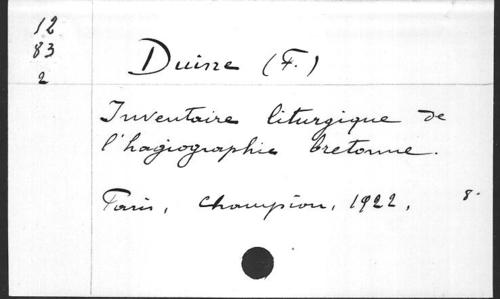 12
83
2
Duine (F.)
Inventaire liturgique de
l'hagiographie bretonne.
Paris, Champion, 1922, 8°